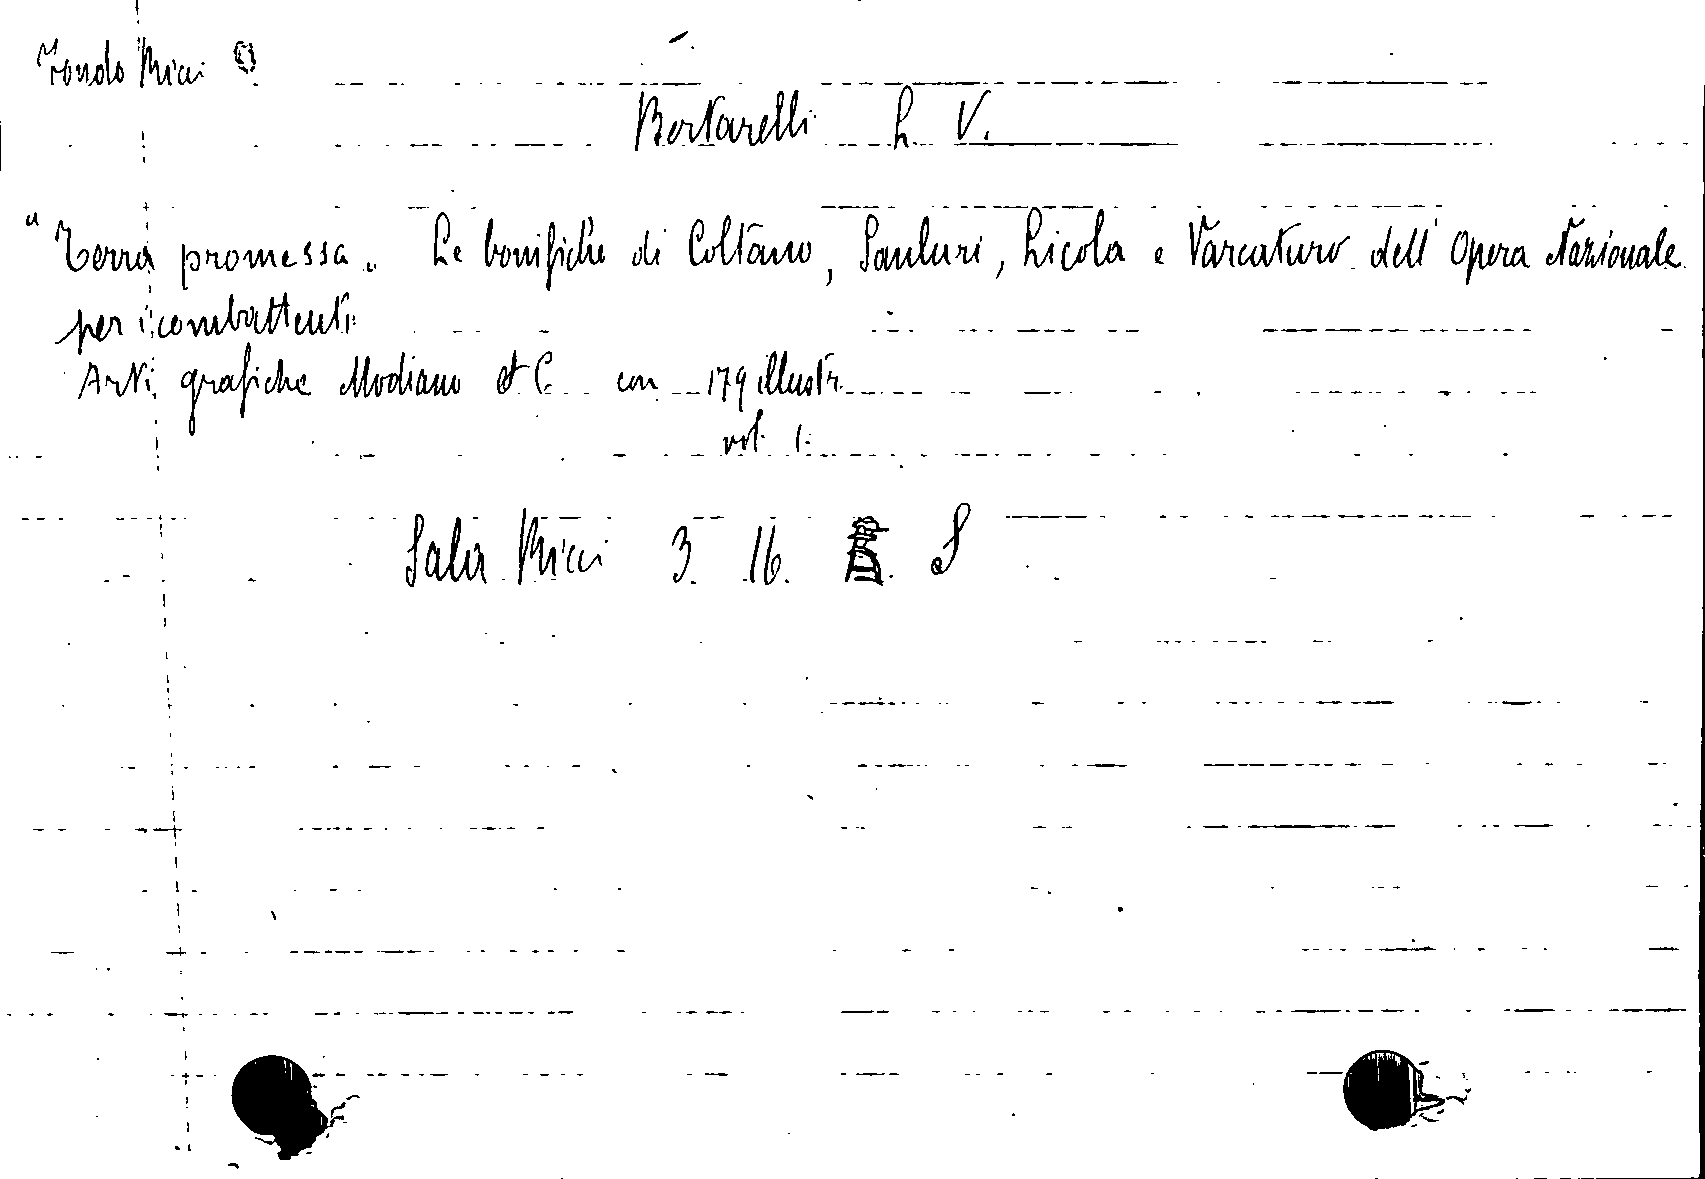 Fondo Ricci
Bertarelli L. V.
"Terra promessa„ Le bonifiche di Coltano, Sanluri, Licola e Varcaturo dell'Opera Nazionale
per i combattenti
Arti grafiche Modiano et C. con 179 illustr.
vol. 1.
Sala Ricci 3. 16. S